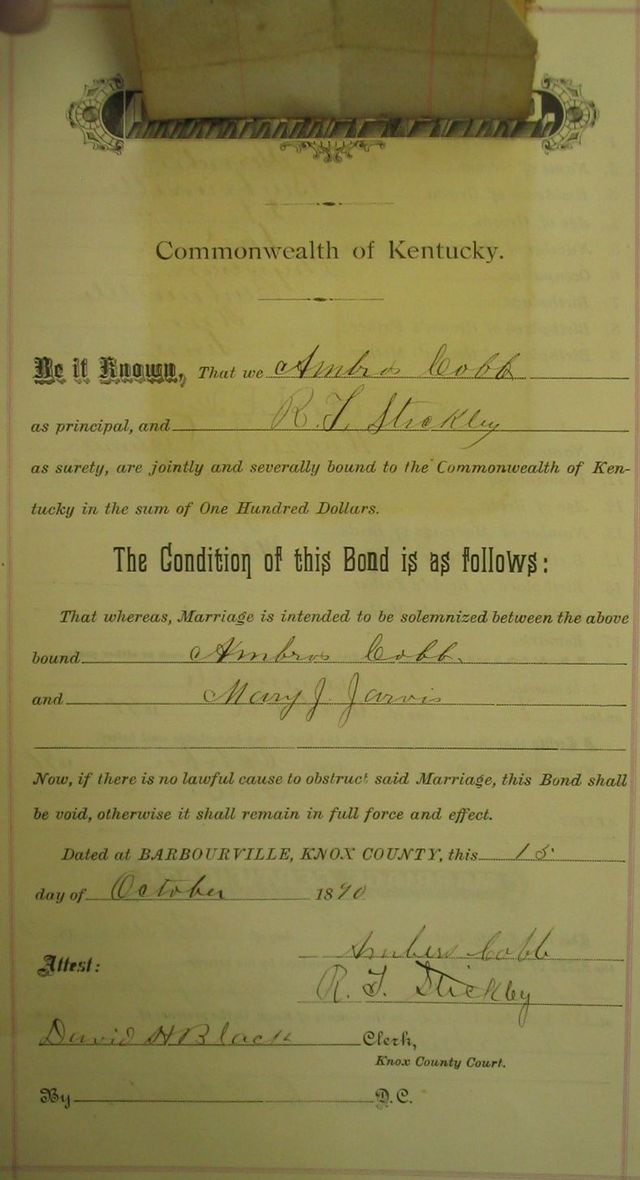 Commonwealth of Kentucky.
Be it Known, That we Ambros Cobb
as principal, and R. F. Stickley
as surety, are jointly and severally bound to the Commonwealth of Ken-
tucky in the sum of One Hundred Dollars.
The Condition of this Bond is as follows:
That whereas, Marriage is intended to be solemnized between the above
bound Ambros Cobb
and Mary J. Jarvis
Now, if there is no lawful cause to obstruct said Marriage, this Bond shall
be void, otherwise it shall remain in full force and effect.
Dated at BARBOURVILLE, KNOX COUNTY, this 15
day of October 1890
Ambers Cobb
Attest:
R. F. Stickley
David H Black Clerk,
Knox County Court.
By D. C.